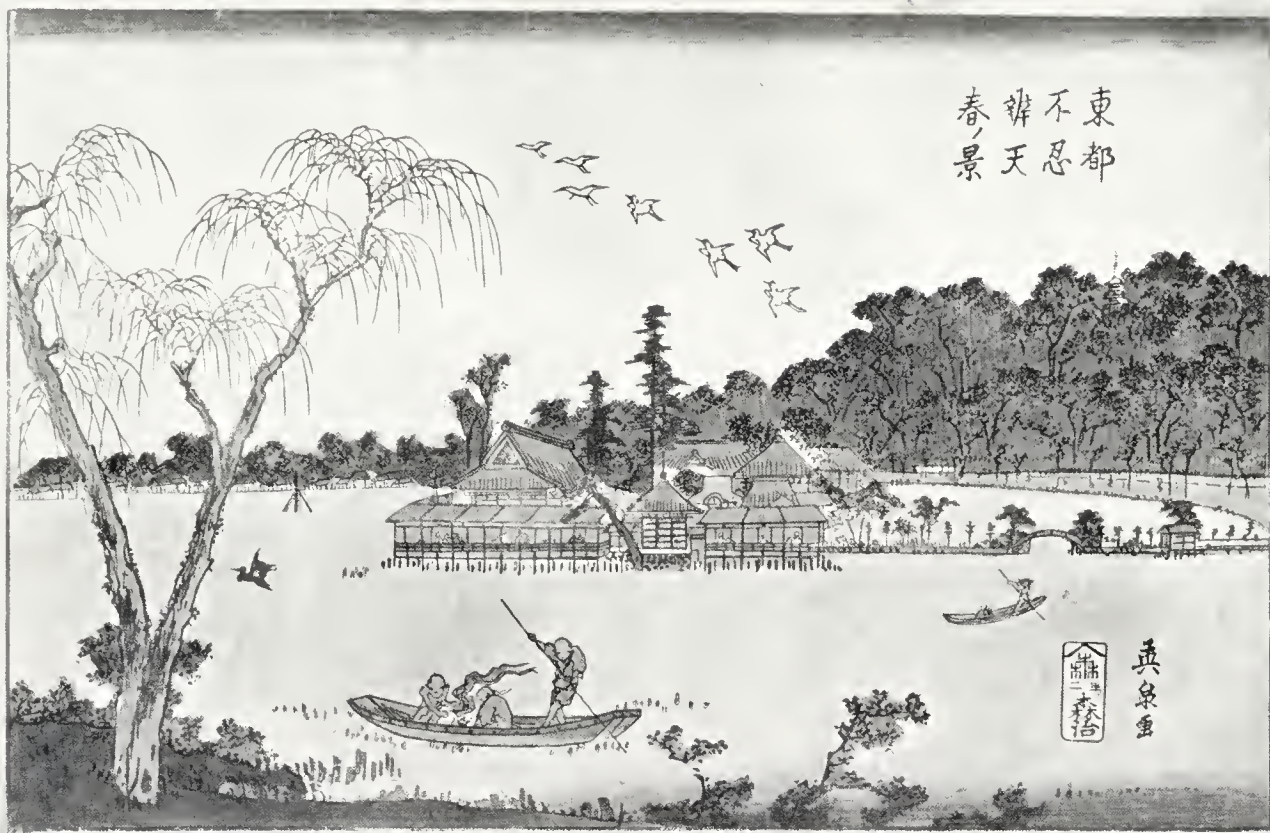 東都
不忍
辨天
春ノ景
英泉画